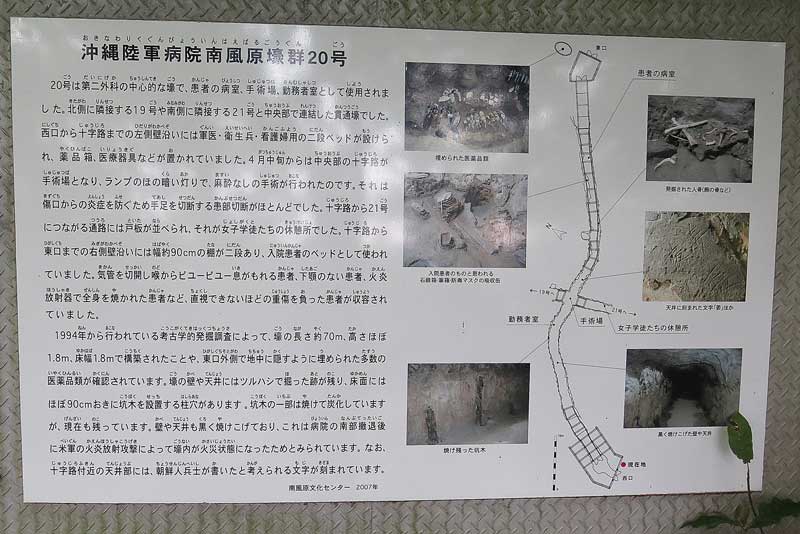 おきなわりくぐんびょういんはえばるごうぐん　ごう
沖縄陸軍病院南風原壕群20号
20号は第二外科の中心的な壕で、患者の病室、手術場、勤務者室として使用されま
した。北側に隣接する19号や南側に隣接する21号と中央部で連結した貫通壕でした。
西口から十字路までの左側壁沿いには軍医・衛生兵・看護婦用の二段ベッドが設けら
れ、薬品箱、医療器具などが置かれていました。4月中旬からは中央部の十字路が
手術場となり、ランプのほの暗い灯りで、麻酔なしの手術が行われたのです。それは
傷口からの炎症を防ぐため手足を切断する患部切断がほとんどでした。十字路から21号
につながる通路には戸板が並べられ、それが女子学徒たちの休憩所でした。十字路から
東口までの右側壁沿いには幅約90cmの棚が二段あり、入院患者のベッドとして使われ
ていました。気管を切開し喉からピューピュー息がもれる患者、下顎のない患者、火炎
放射器で全身を焼かれた患者など、直視できないほどの重傷を負った患者が収容され
ていました。
1994年から行われている考古学的発掘調査によって、壕の長さ約70m、高さほぼ
1.8m、床幅1.8mで構築されたことや、東口外側で地中に隠すように埋められた多数の
医薬品類が確認されています。壕の壁や天井にはツルハシで掘った跡が残り、床面には
ほぼ90cmおきに坑木を設置する柱穴があります。坑木の一部は焼けて炭化しています
が、現在も残っています。壁や天井も黒く焼けこげており、これは病院の南部撤退後
に米軍の火炎放射攻撃によって壕内が火災状態になったためとみられています。なお、
十字路付近の天井部には、朝鮮人兵士が書いたと考えられる文字が刻まれています。
南風原文化センター　2007年
埋められた医薬品類
入院患者のものと思われる
石鹸箱・薬箱・防毒マスクの吸収缶
焼け残った坑木
東口
患者の病室
19号へ
21号へ
勤務者室
手術場
女子学徒たちの休憩所
現在地
西口
発掘された人骨(腕の骨など)
天井に刻まれた文字「姜」ほか
黒く焼けこげた壁や天井